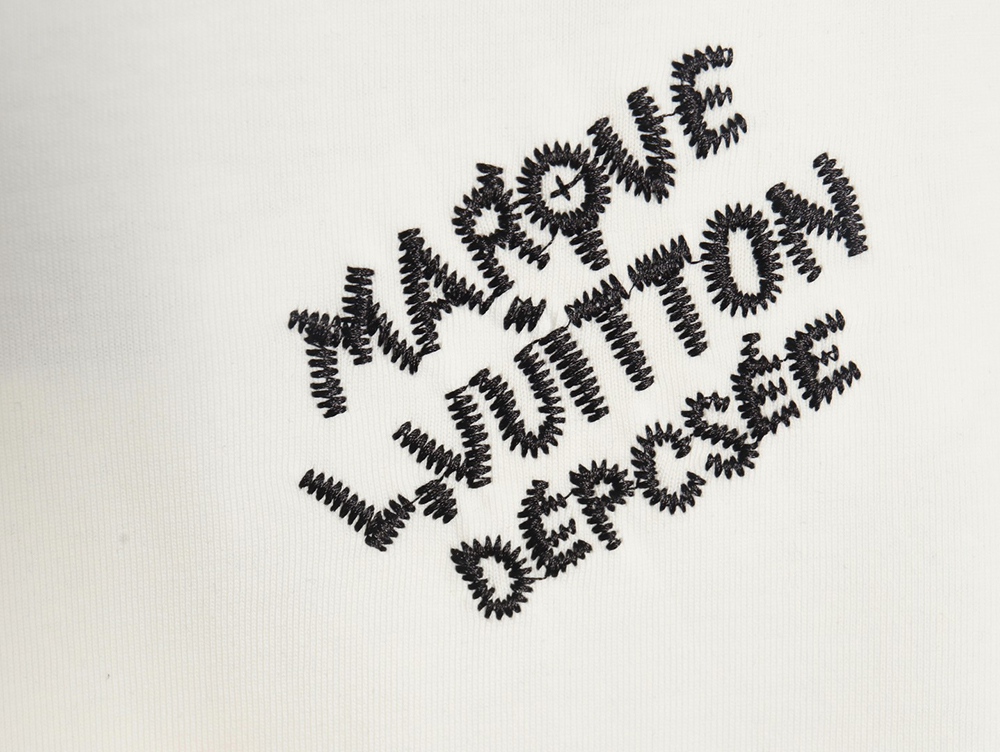 MARQVE
L.VUITTON
DÉPCSÉE